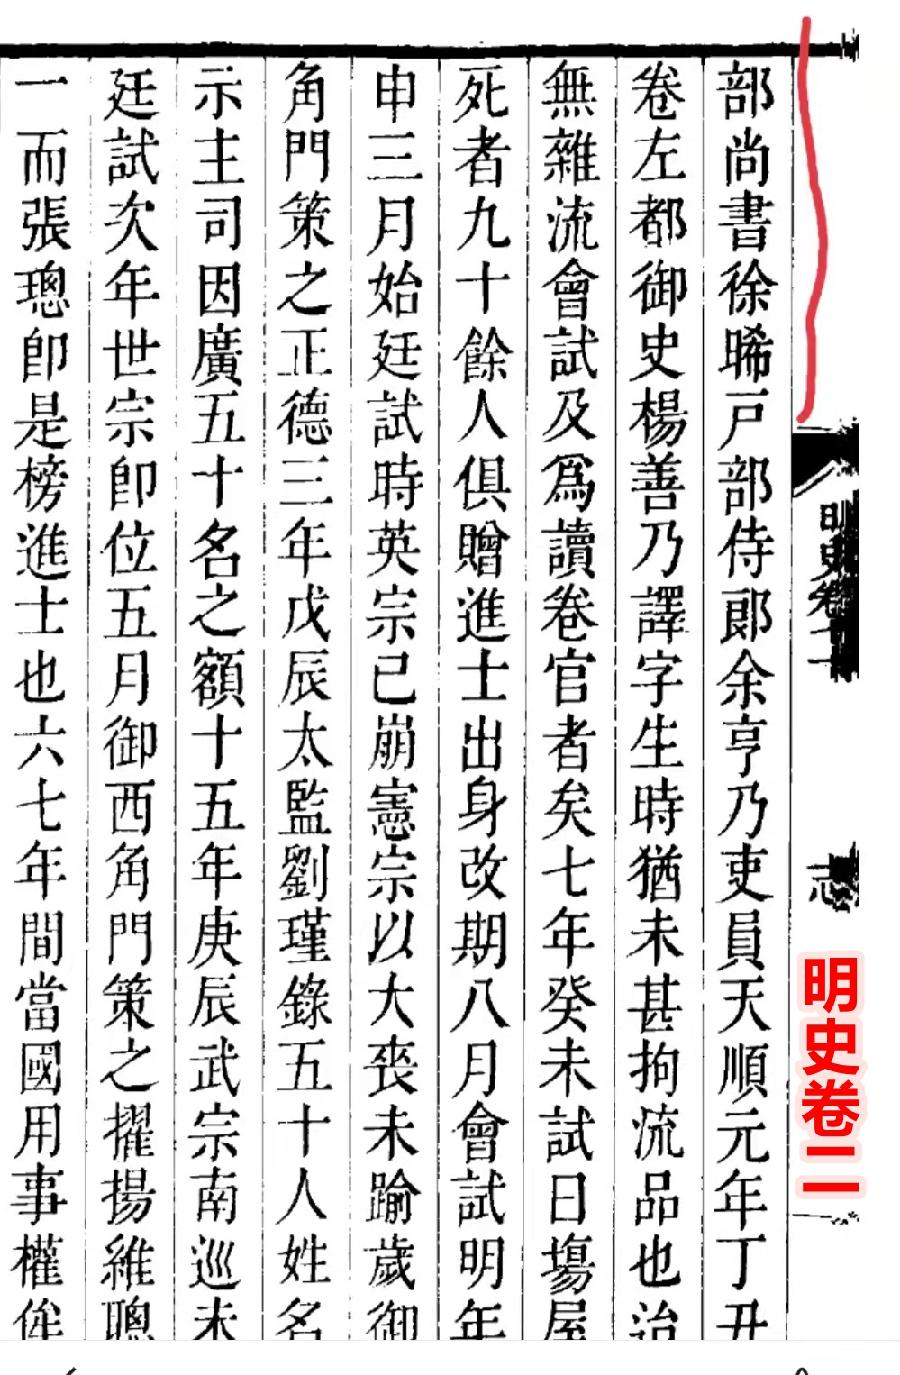 明史卷
志
明史卷二
部尚書徐晞戸部侍郎余亨乃吏員天順元年丁丑
卷左都御史楊善乃譯字生時猶未甚拘流品也
無雜流會試及爲讀卷官者矣七年癸未試日塲屋
死者九十餘人俱贈進士出身改期八月會試明年
申三月始廷試時英宗已崩憲宗以大喪未踰歲御
角門策之正德三年戊辰太監劉瑾錄五十人姓名
示主司因廣五十名之額十五年庚辰武宗南巡未
廷試次年世宗卽位五月御西角門策之擢揚維聰
一而張璁卽是榜進士也六七年間當國用事權侔